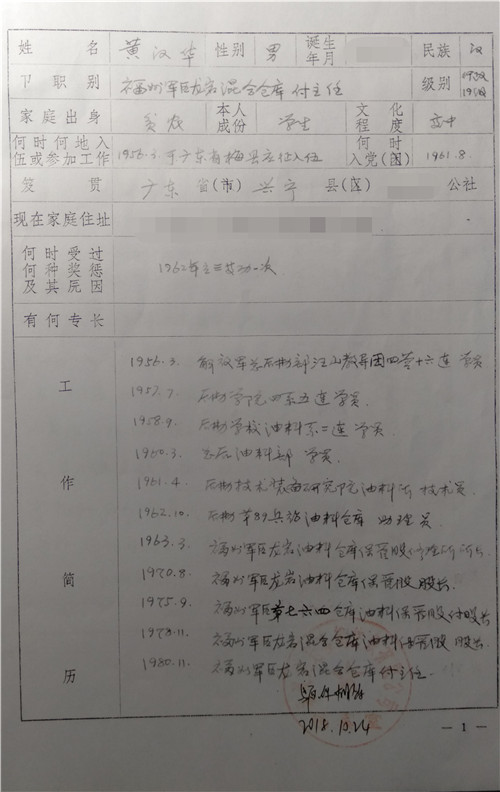 姓名 黄汉华 性别 男 诞生年月 民族 汉
职别 福州军区龙岩混合仓库付主任 级别
家庭出身 贫农 本人成份 学生 文化程度 高中
何时何地入伍或参加工作 1956.3.于广东省梅县应征入伍 何时入党(团) 1961.8.
籍贯 广东省(市) 兴宁县(区) 公社
现在家庭住址
何时受过何种奖惩及其原因 1962年立三等功一次
有何专长
工作简历
1956.3. 解放军总后勤部汪山教导团四营十六连 学员
1957.7. 后勤学院四系五连学员.
1958.9. 后勤学校油料系二连 学员.
1960.3. 总后油料部 学员.
1961.4. 后勤技术装备研究院油料所 技术员.
1962.10. 后勤第89兵站油料仓库 助理员.
1963.3. 福州军区龙岩油料仓库保管股
1970.8. 福州军区龙岩油料仓库保管股 股长.
1975.9. 福州军区第七六四仓库油料保管股付股长
1978.11. 福州军区龙岩混合仓库油料保管股 股长.
1980.11. 福州军区龙岩混合仓库付主任.
2018.10.24
— 1 —